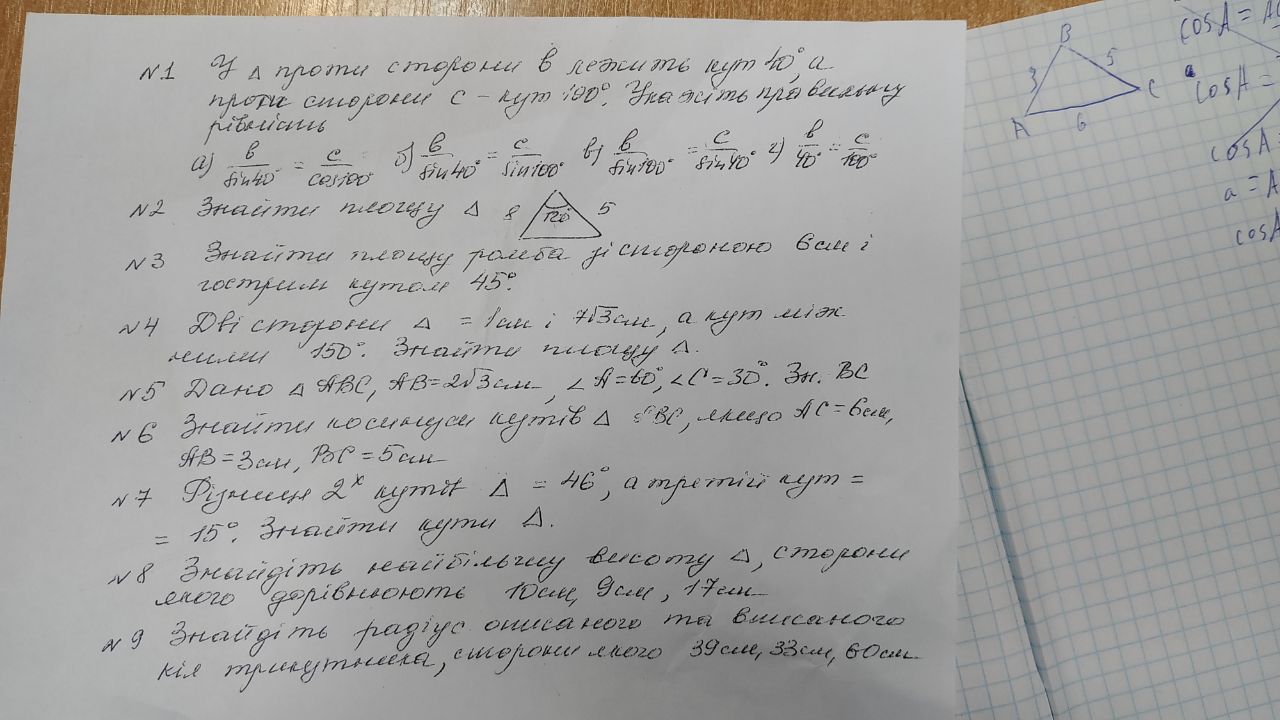 №1 У △ проти сторони в лежить кут 40°, а
проти сторони с – кут 100°. Укажіть правильну
рівність
а) в/sin40° = c/cos100° б) в/sin40° = c/sin100° в) в/sin100° = c/sin40° г) в/40° = c/100°
№2 Знайти площу △ 8 120° 5
№3 Знайти площу ромба зі стороною 6см і
гострим кутом 45°.
№4 Дві сторони △ = 1см і 7√3см, а кут між
ними 150°. Знайти площу △.
№5 Дано △ ABC, AB=2√3см, ∠A=60°, ∠C=30°. Зн. BC
№6 Знайти косинуси кутів △ ABC, якщо AC=6см,
AB=3см, BC=5см
№7 Різниця 2х кутів △ = 46°, а третій кут =
= 15°. Знайти кути △.
№8 Знайдіть найбільшу висоту △, сторони
якого дорівнюють 10см, 9см, 17см
№9 Знайдіть радіус описаного та вписаного
кіл трикутника, сторони якого 39см, 33см, 60см
B
3 5
A 6 C
cosA = 
cosA =
cosA =
a = 
cosA